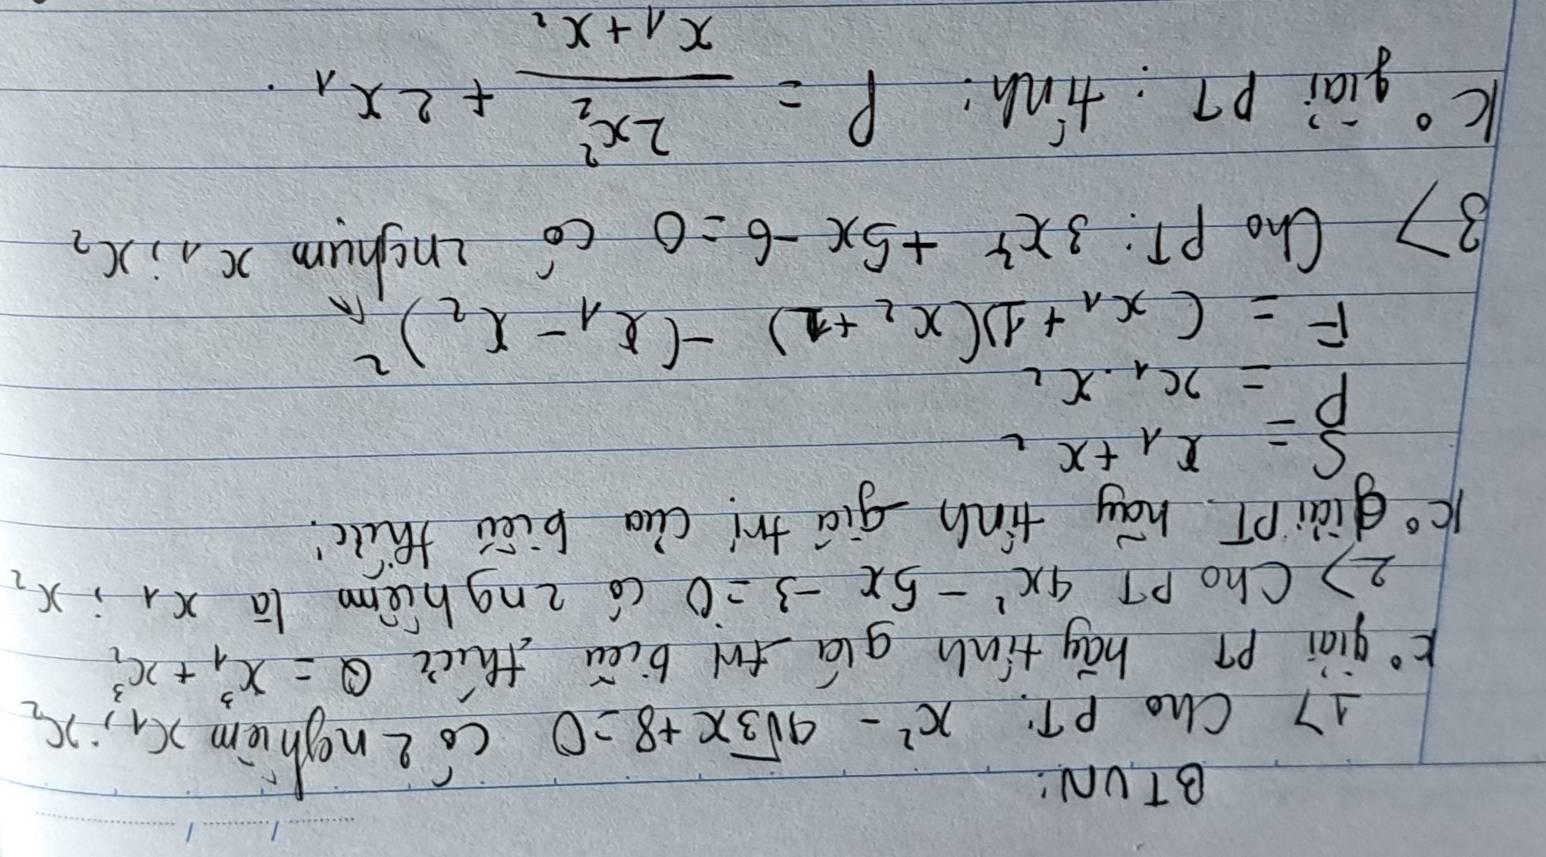 BTVN:
1> Cho PT: x² - 4√3x + 8 = 0 có 2 nghiệm x₁; x₂
K° giải PT hãy tính giá trị biểu thức Q = x₁³ + x₂³
2> Cho PT 4x² - 5x - 3 = 0 có 2 nghiệm là x₁; x₂
K° giải PT. hãy tính giá trị của biểu thức:
S = x₁ + x₂
P = x₁ . x₂
F = (x₁ + 1)(x₂ + 1) - (x₁ - x₂)²
3> Cho PT: 3x² + 5x - 6 = 0 có 2 nghiệm x₁; x₂
K° giải PT: tính: P = 2x₂² / (x₁ + x₂) + 2x₁.